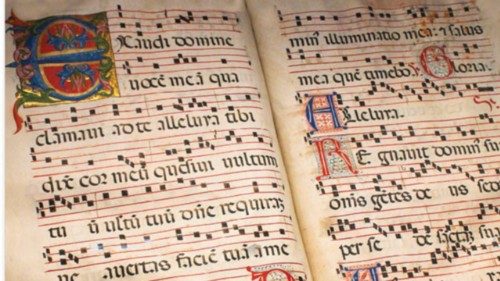 Exaudi domine
uocē meā qua
clamaui ad te alleluia tibi
dix̄ cor meū quesiui uultum
tu ū uultū tuū dñe requiraz
ne auertas faciē tuā a me
minꝰ illuminatio mea & salus
mea quē timebo. Gloria.
Alleluia.
Regnauit dominꝰ su
om̄s gētes deus se
per se dē